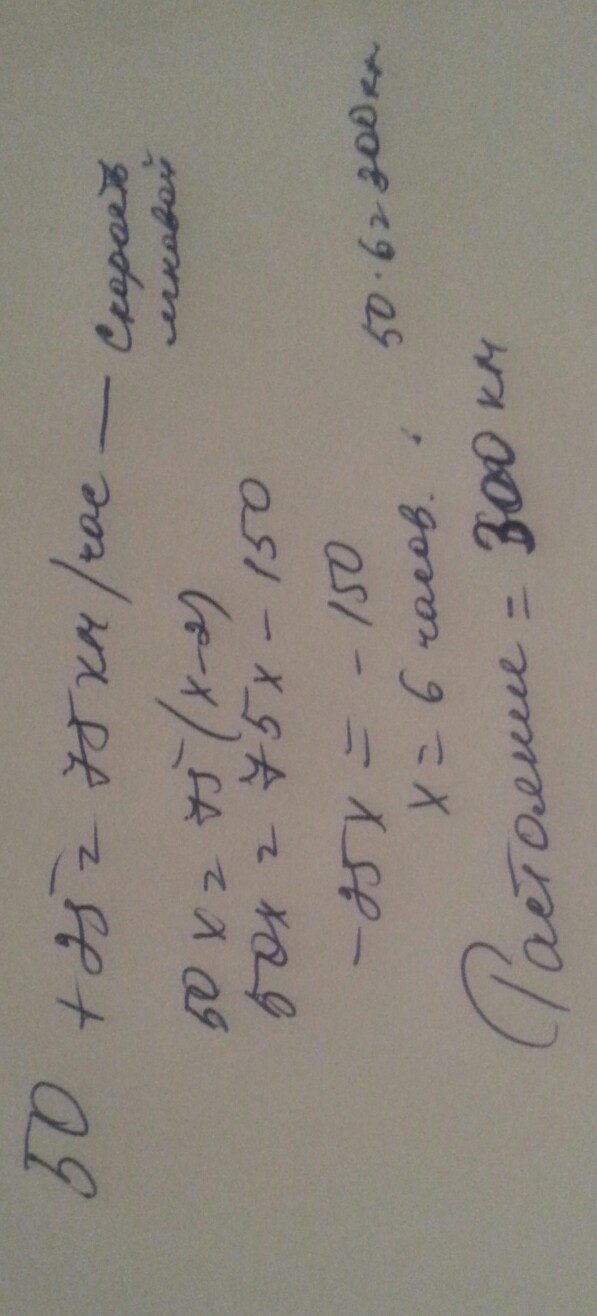 50 + 25 = 75 км/час — Скорость
легковой
50x = 75 (x-2)
50x = 75x - 150
-25x = -150
x = 6 часов. 50 · 6 = 300 км
Растояние = 300 км